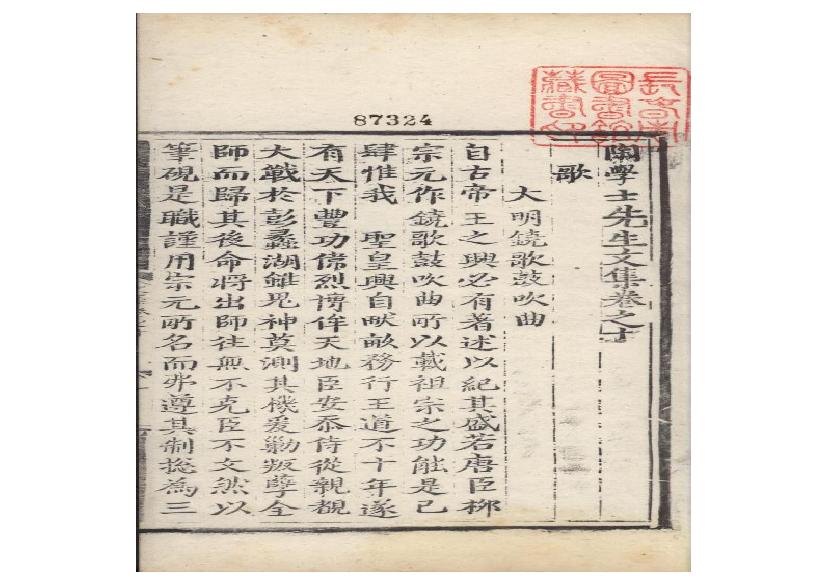 87324
陶學士先生文集卷之十
歌
大明鐃歌鼓吹曲
自古帝王之興必有著述以紀其盛若唐臣柳
宗元作鐃歌鼓吹曲所以載祖宗之功能是已
肆惟我 聖皇興自畎畝務行王道不十年遂
有天下豐功偉烈博侔天地臣安忝侍從親覩
大戰於彭蠡湖雖鬼神莫測其機爰勦叛孽全
師而歸其後命將出師往無不克臣不文然以
筆硯是職謹用宗元所名而弗遵其制捴為三